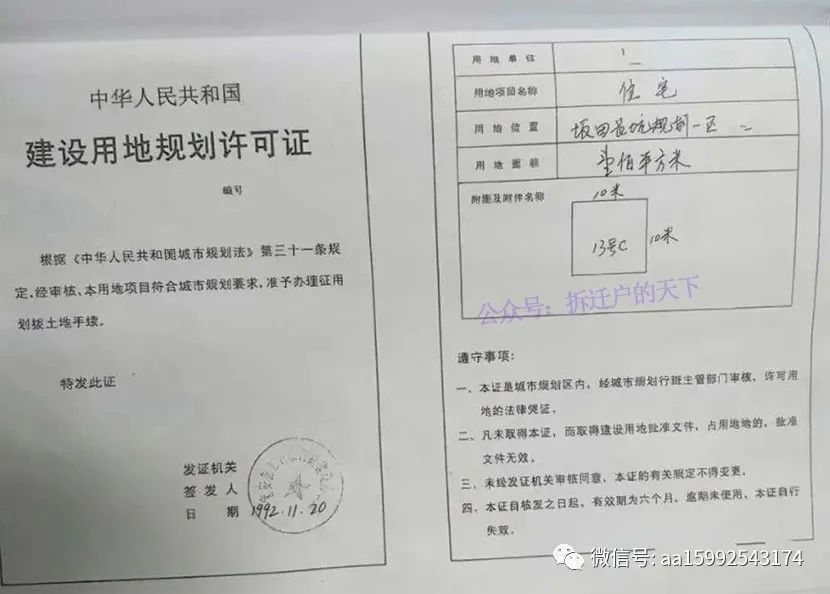 中华人民共和国
建设用地规划许可证
编号
根据《中华人民共和国城市规划法》第三十一条规
定，经审核、本用地项目符合城市规划要求，准予办理征用
划拨土地手续。
特发此证
发证机关
签发人
日期 1992.11.20
用地单位
用地项目名称 住宅
用地位置 坂田 坑规划一区
用地面积 壹佰平方米
附图及附件名称
10米
13号C
10米
公众号：拆迁户的天下
遵守事项：
一、本证是城市规划区内，经城市规划行政主管部门审核，许可用
地的法律凭证。
二、凡未取得本证，而取得建设用地批准文件，占用地地的，批准
文件无效。
三、未经发证机关审核同意，本证的有关规定不得变更。
四、本证自核发之日起，有效期为六个月，逾期未使用、本证自行
失效。
微信号: aa15992543174